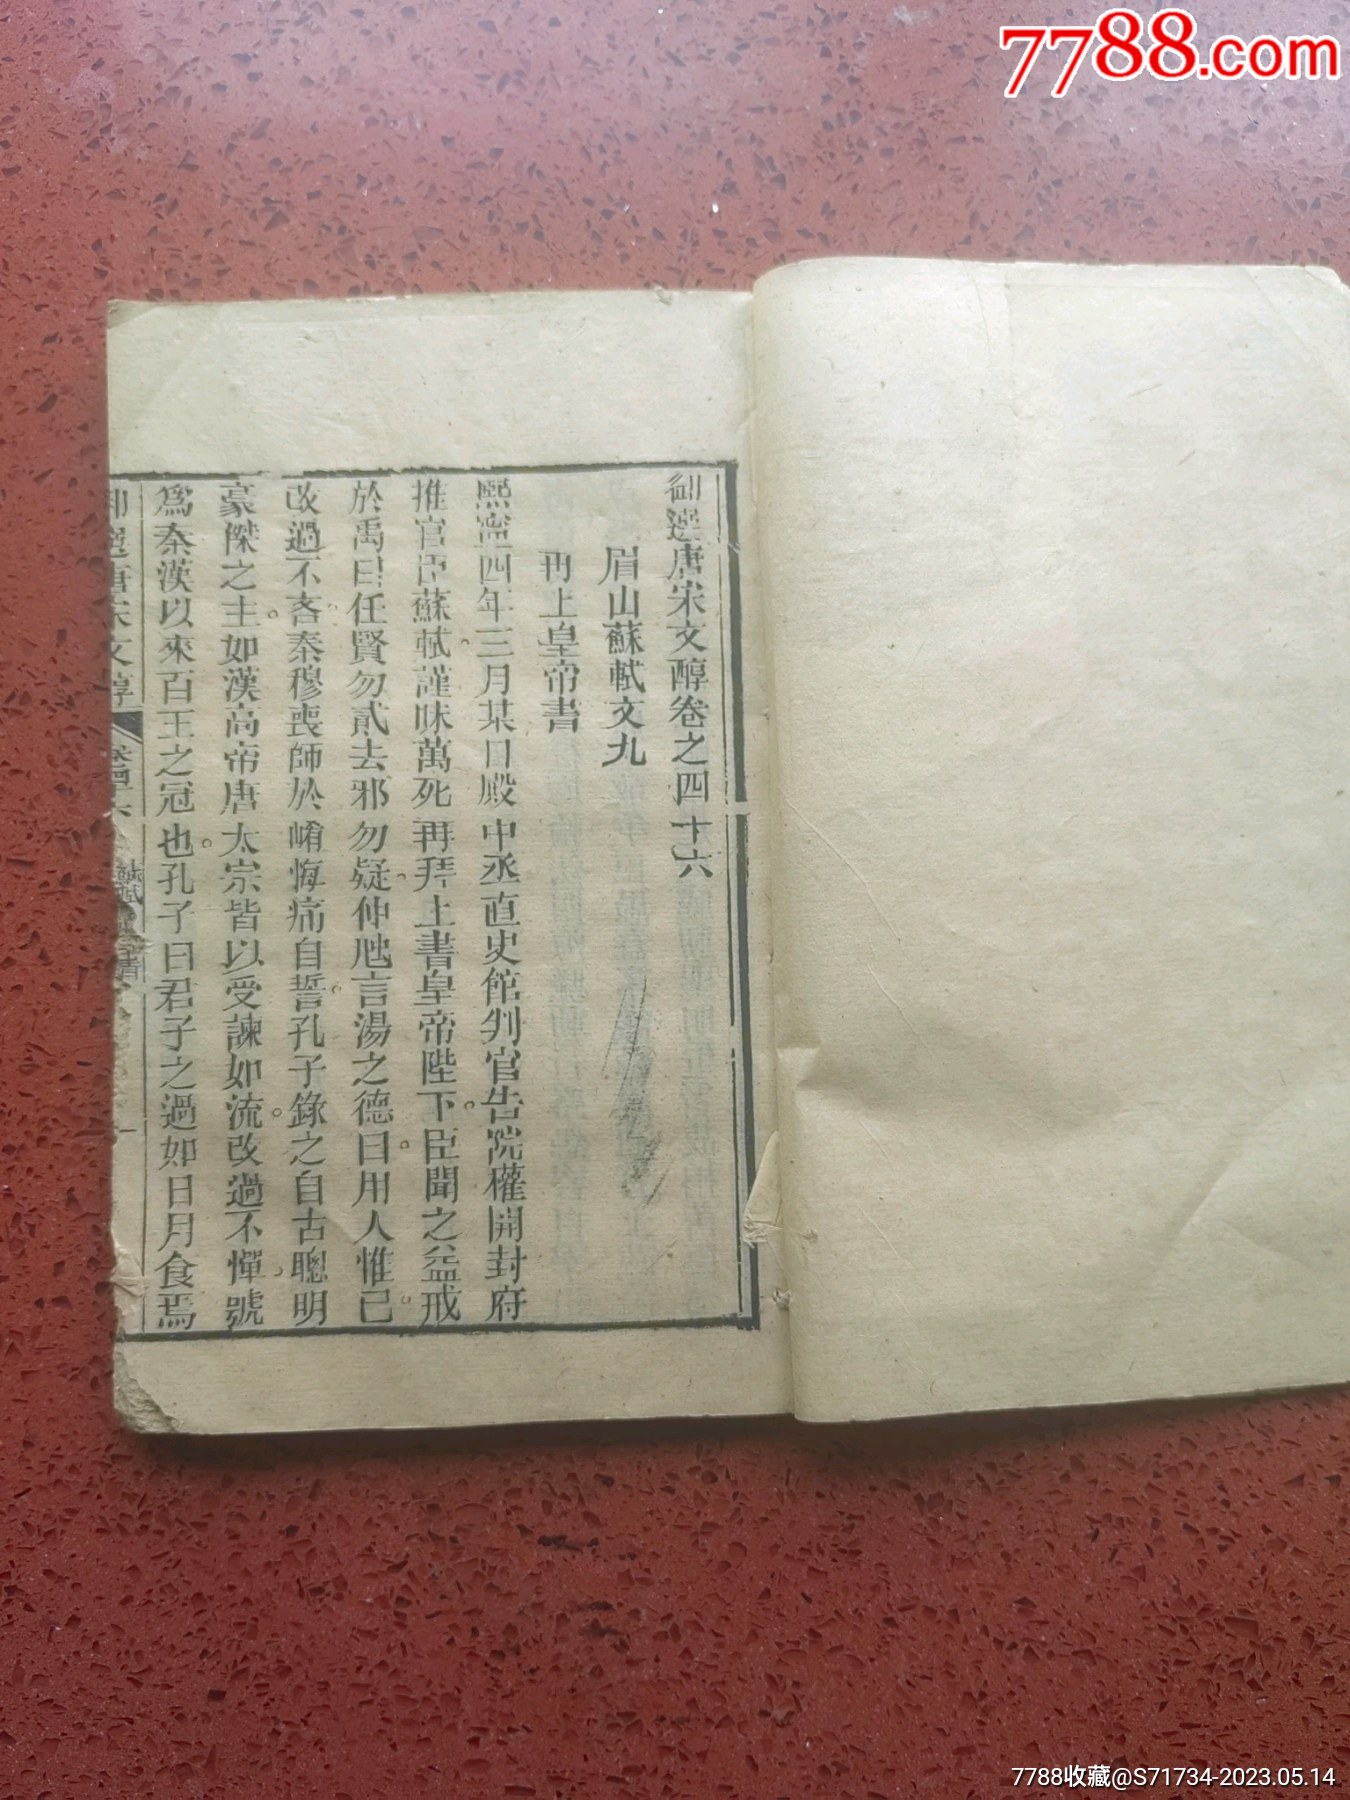 7788.com
御選唐宋文醇卷之四十六
眉山蘇軾文九
再上皇帝書
熙寧四年三月某日殿中丞直史館判官告院權開封府
推官臣蘇軾謹昧萬死再拜上書皇帝陛下臣聞之益戒
於禹曰任賢勿貳去邪勿疑仲虺言湯之德曰用人惟己
改過不吝秦穆喪師於崤悔痛自誓孔子錄之自古聰明
豪傑之主如漢高帝唐太宗皆以受諫如流改過不憚號
爲秦漢以來百王之冠也孔子曰君子之過如日月食焉
御選唐宋文醇 卷四十六
7788收藏@S71734-2023.05.14